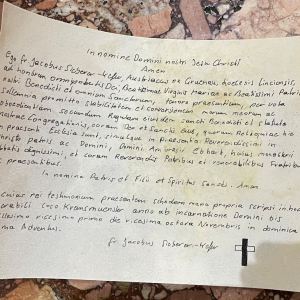 In nomine Domini nostri Jesu Christi
Amen
Ego fr. Jacobus Sieberer-Kefer, Austriacus ex Gruenau, dioecesis Linciensis,
ad honorem omnipotentis Dei, Beatissimae Virginis Mariae ac Beatissimi Patris
nostri Benedicti et omnium Sanctorum, tenore praesentium, per vota
sollemnia promitto stabilitatem et conversionem morum meorum ac
obedientiam secundum Regulam eiusdem sancti Benedicti et statuta
nostrae Congregationis, coram Deo et Sanctis eius, quorum Reliquiae hic
in praesenti Ecclesia sunt, simulque in Praesentia Reverendissimi in
Christo patris ac Domini, Domini Ambrosii Ebhart, huius monasterii
Abbatis dignissimi, et coram Reverendis Patribus et venerabilibus Fratribus
hic praesentibus.
In nomine Patris et Filii et Spiritus Sancti. Amen
In cuius rei testimonium praesentem schedam manu propria scripsi in hoc
venerabili loco Kremsmuenster anno ab incarnatione Domini bis
millesimo vicesimo primo die vicesima octava Novembris in dominica
prima Adventus.
fr. Jacobus Sieberer-Kefer